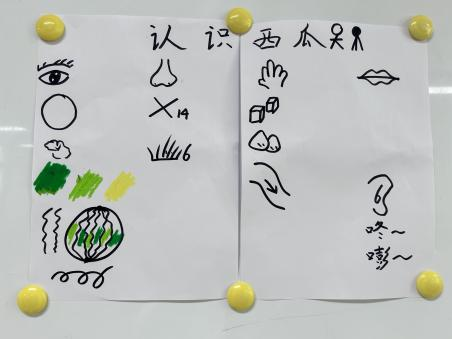 认识西瓜
×14
6
咚~
嘭~